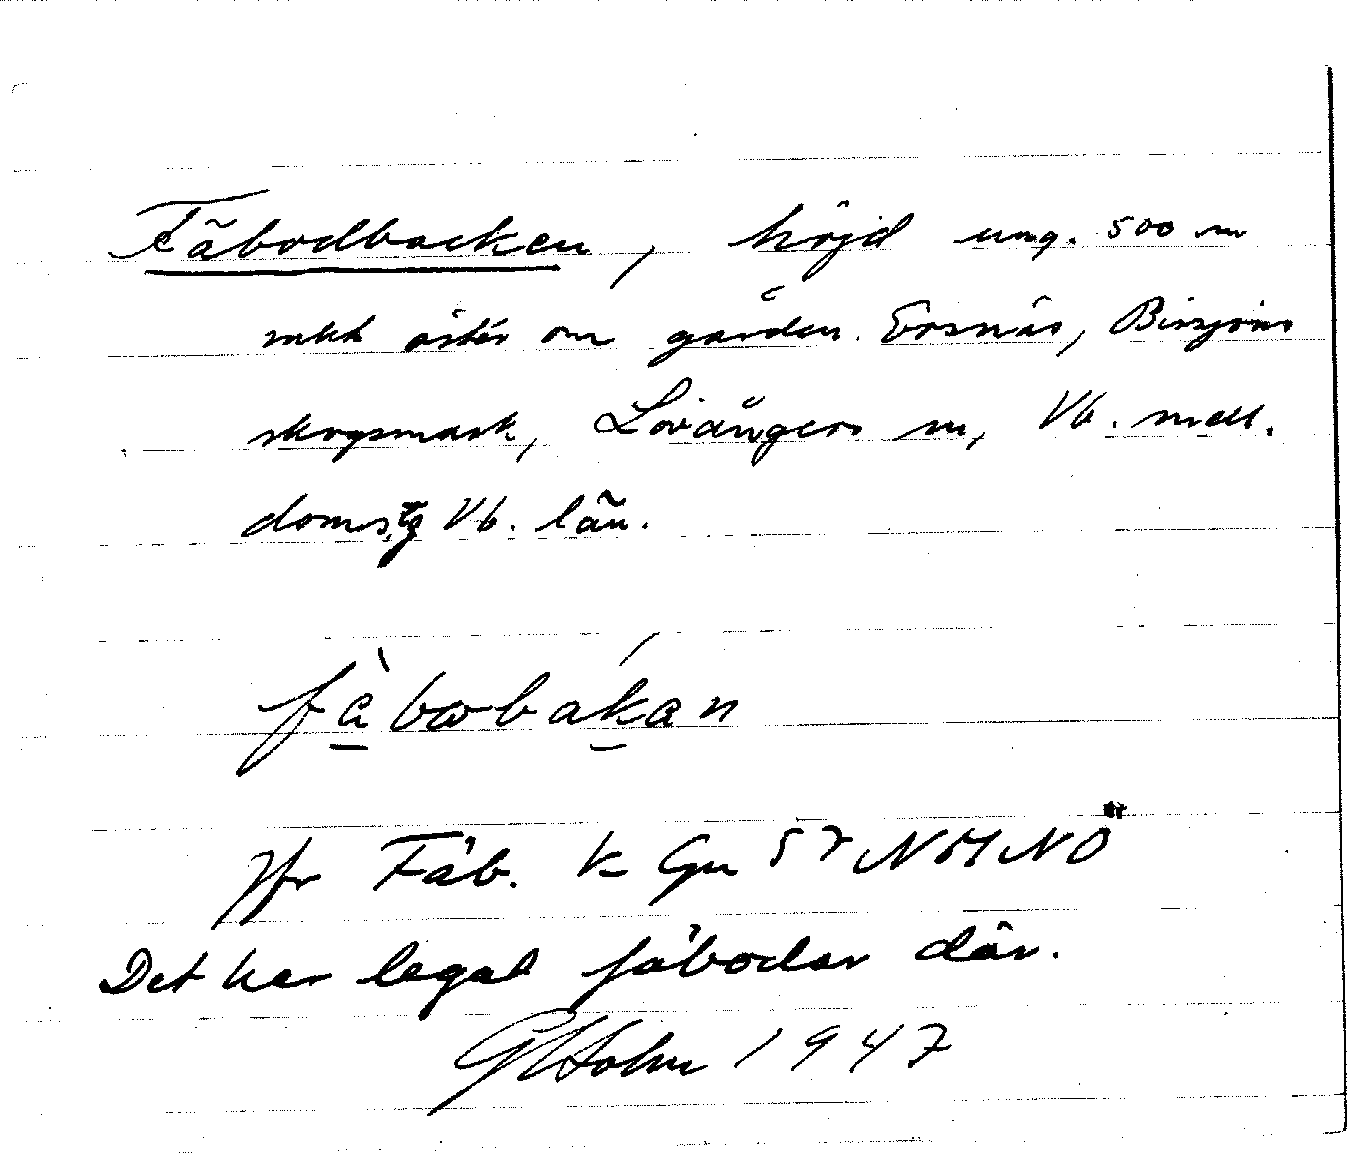 Fäbodbacken, höjd ung. 500 m
rakt öster om gården Ersnäs, Bissjöns
skogsmark, Lövångers sn, Vb. mell.
doms.tg Vb. län.
fä̀bωbákan
Jfr Fäb. k Gu 52 NHNÖ
Det har legat fäbodar där.
Holm 1947